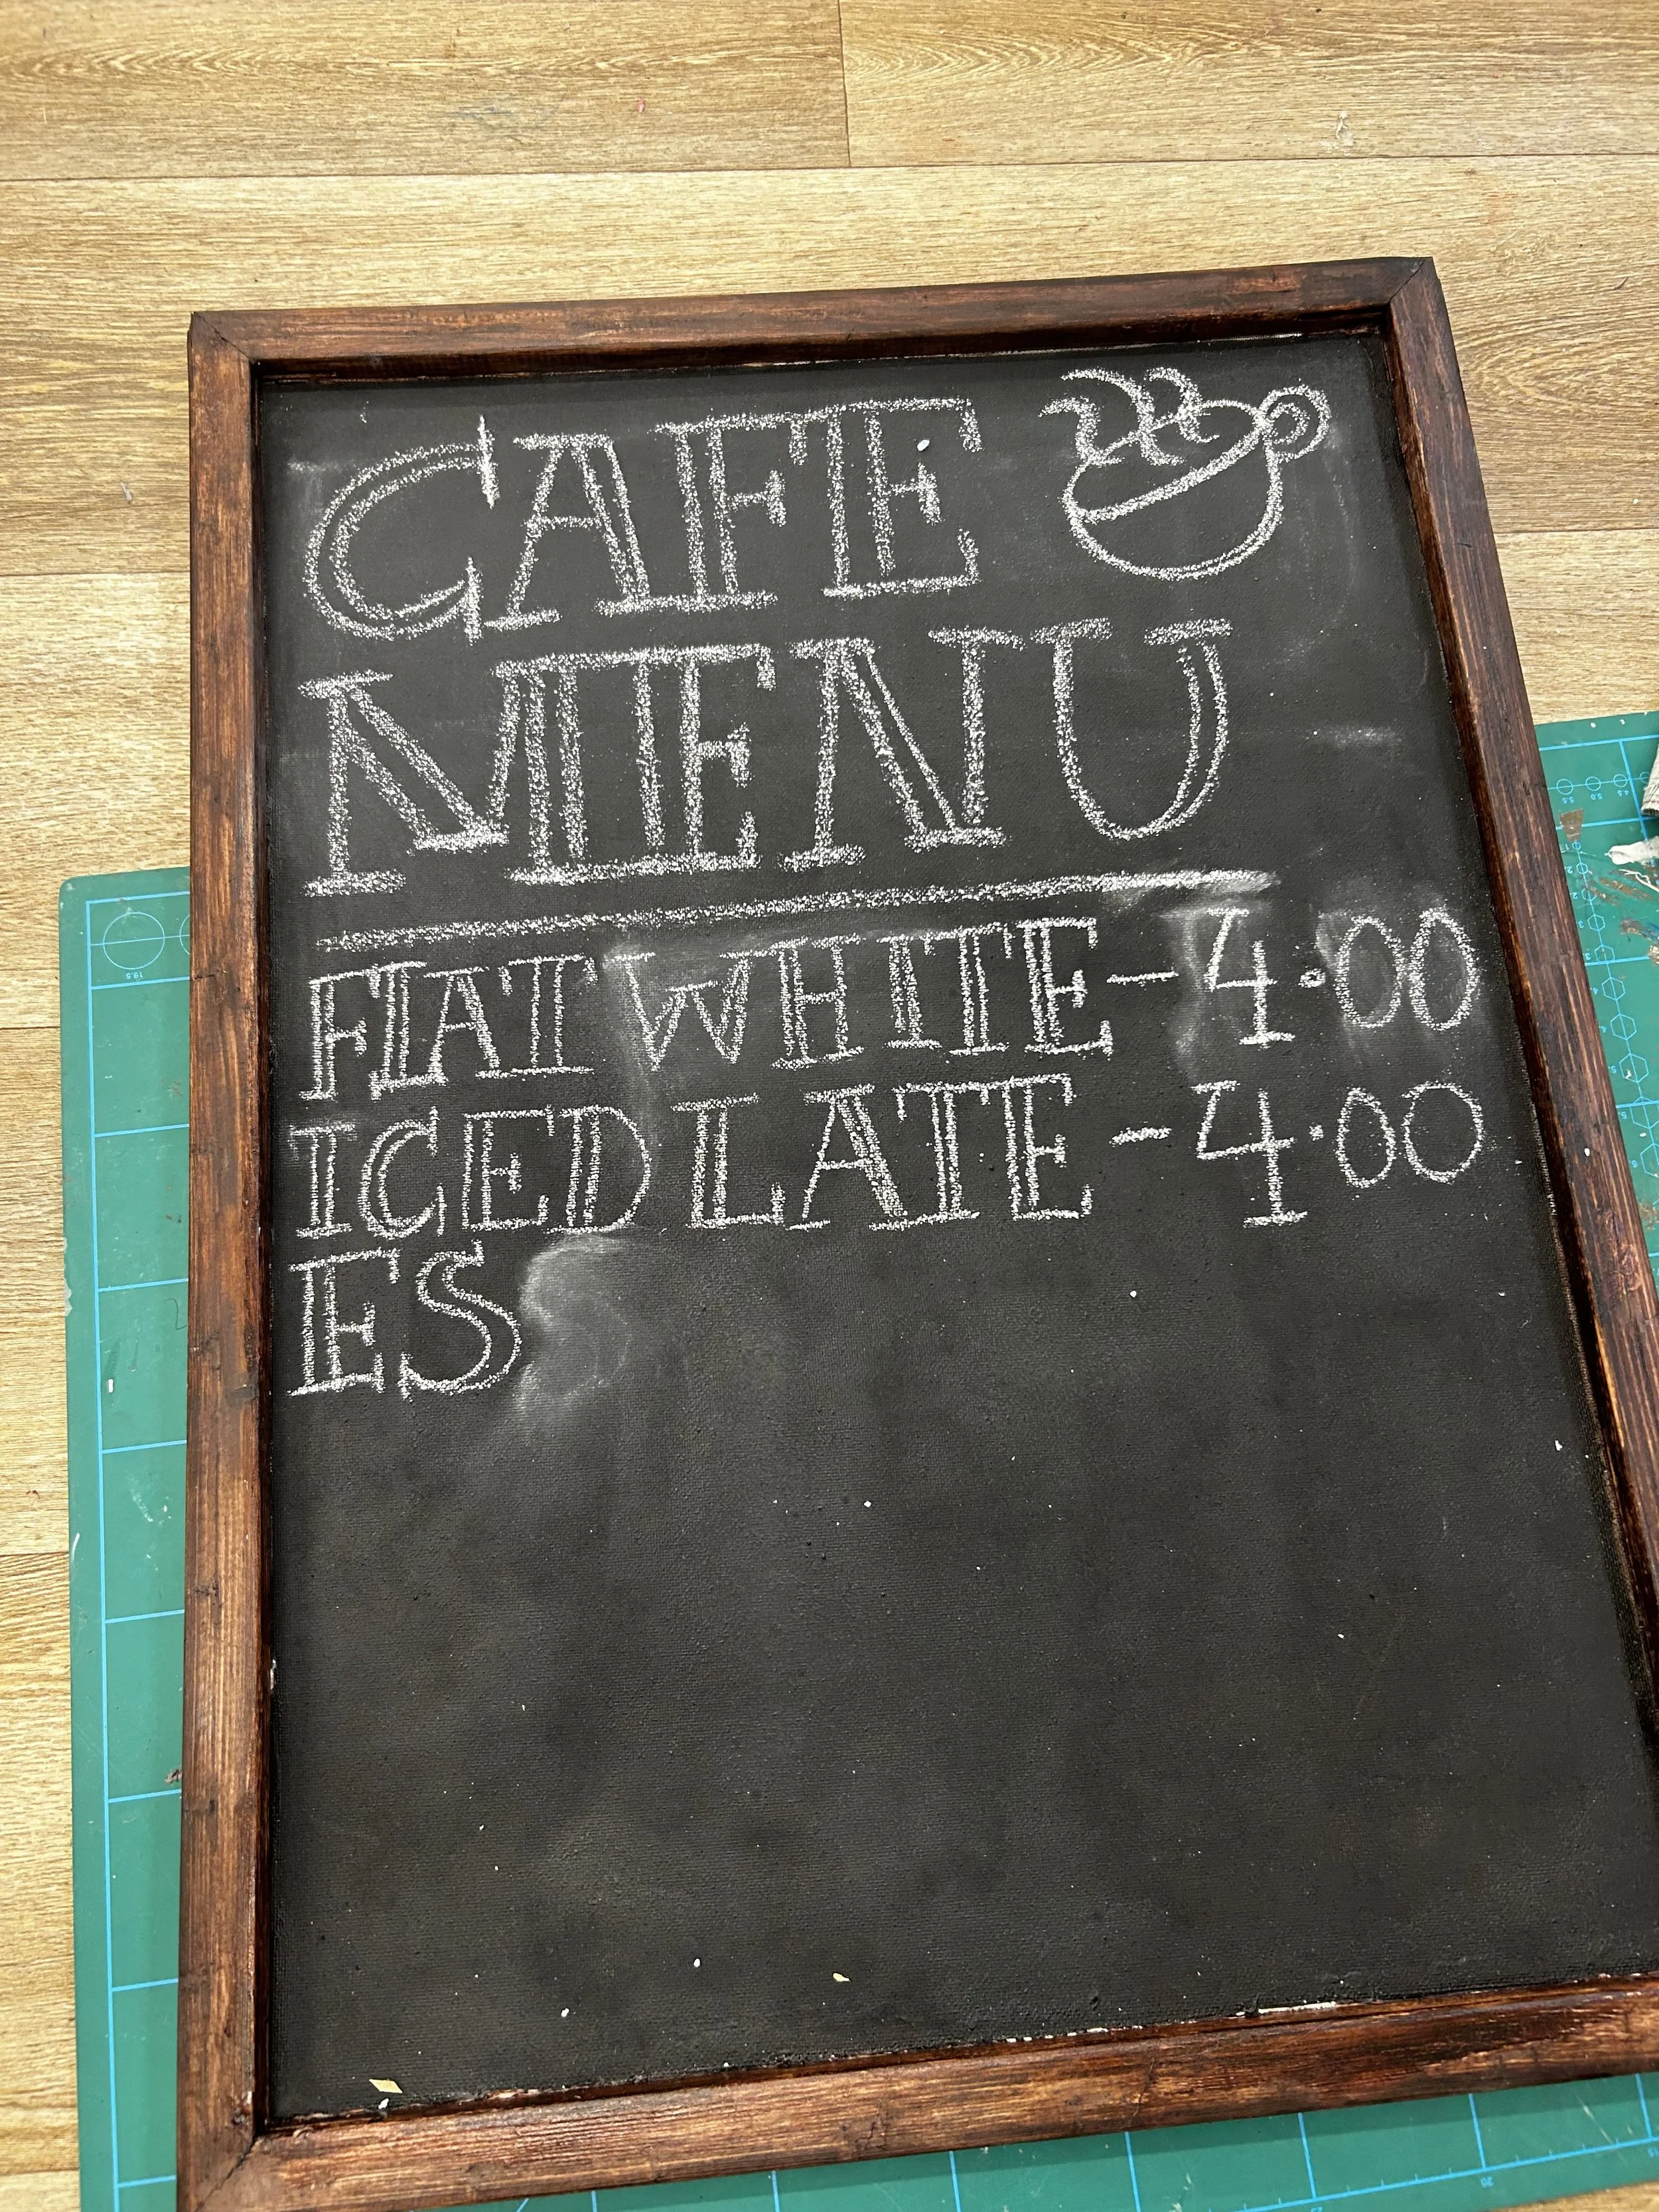 CAFE
MENU
FLAT WHITE - 4.00
ICED LATE - 4.00
ES